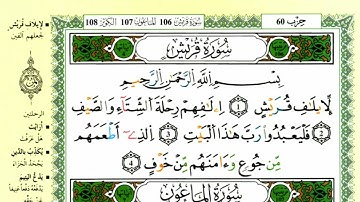 حزب 60
سورة قريش 106 الماعون 107 الكوثر 108
سُورَةُ قُرَيْشٍ
بِسْمِ اللَّهِ الرَّحْمَٰنِ الرَّحِيمِ
لِإِيلَافِ قُرَيْشٍ ① إِۦلَافِهِمْ رِحْلَةَ الشِّتَاءِ وَالصَّيْفِ
② فَلْيَعْبُدُوا رَبَّ هَٰذَا الْبَيْتِ ③ الَّذِي أَطْعَمَهُم
مِّن جُوعٍ وَءَامَنَهُم مِّنْ خَوْفٍ ④
سُورَةُ الْمَاعُونِ
لإيلاف قريش
الرحلتين
أرأيت
يكذب بالدين
يجحد الجزاء
يدع اليتيم